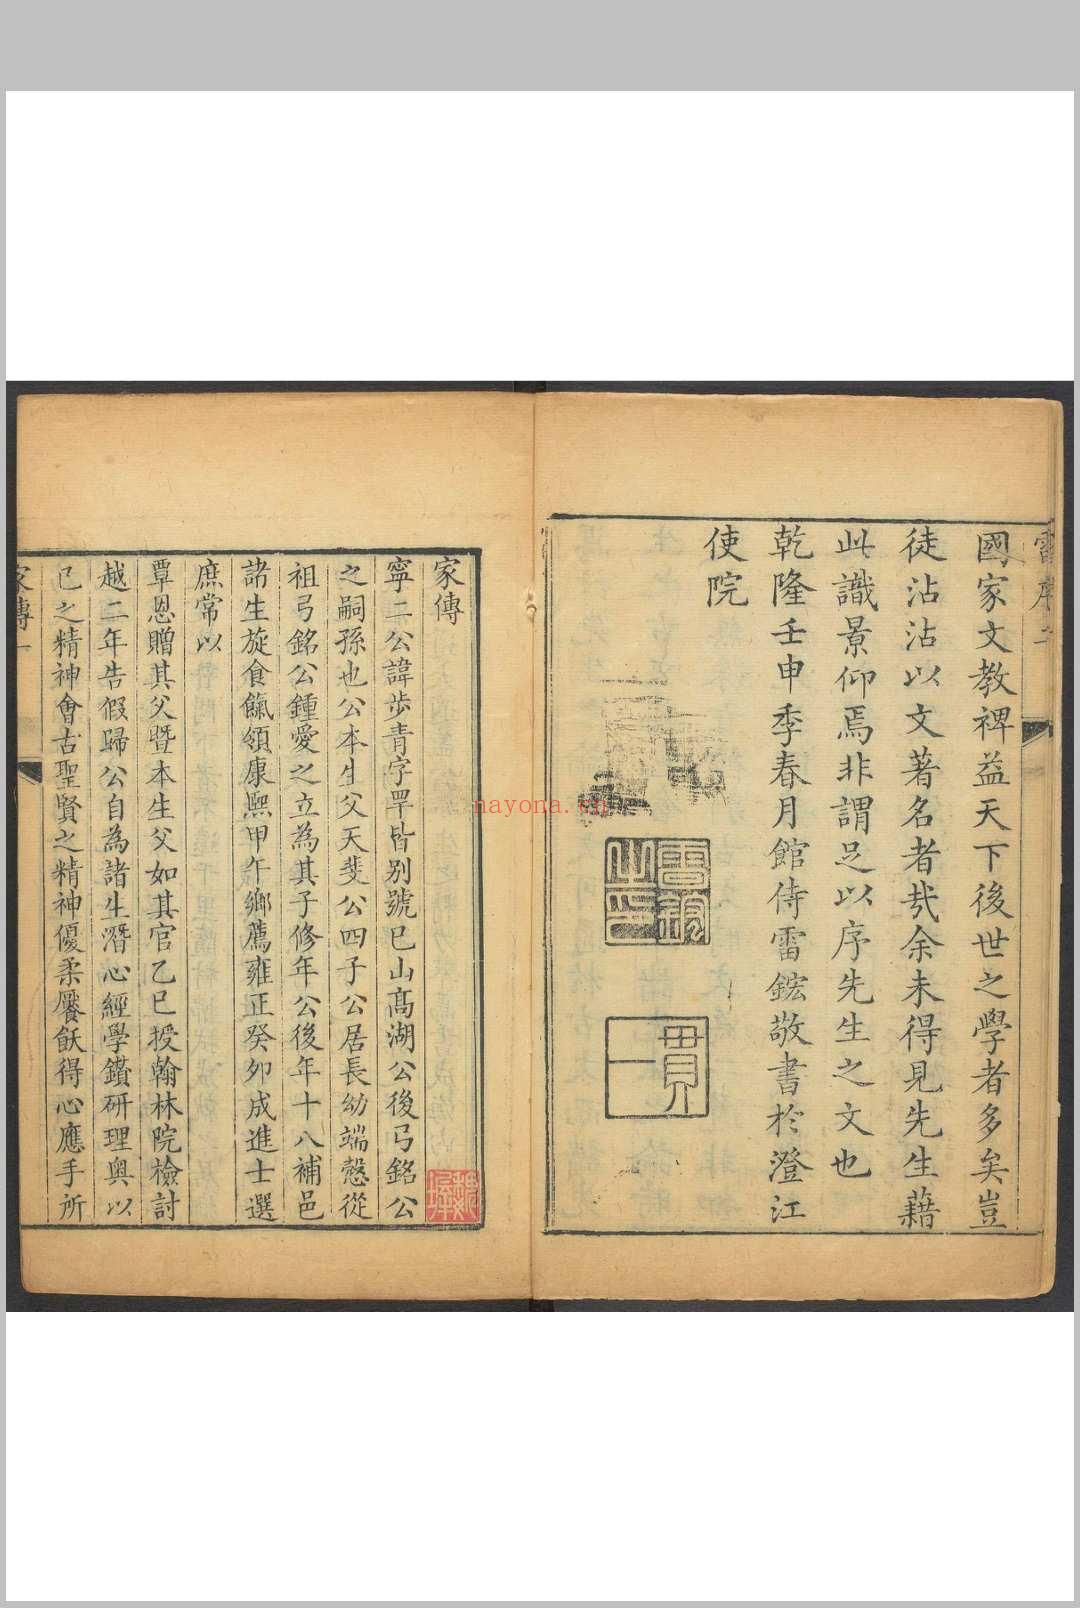 雷序二
國家文教裨益天下後世之學者多矣豈
徒沾沾以文著名者㢤余未得見先生藉
此識景仰焉非謂足以序先生之文也
乾隆壬申季春月館侍雷鋐敬書於澄江
使院
雷鋐之印
一貫
家傳
寧二公諱步青字罕皆别號巳山高湖公後弓銘公
之嗣孫也公本生父天斐公四子公居長幼端慤從
祖弓銘公鍾愛之立為其子修年公後年十八補邑
諸生旋食餼領康熙甲午鄉薦雍正癸卯成進士選
庶常以
覃恩贈其父暨本生父如其官乙巳授翰林院檢討
越二年告假歸公自為諸生潛心經學鑽研理奥以
己之精神會古聖賢之精神優柔饜飫得心應手所
家傳一
nayona.cn